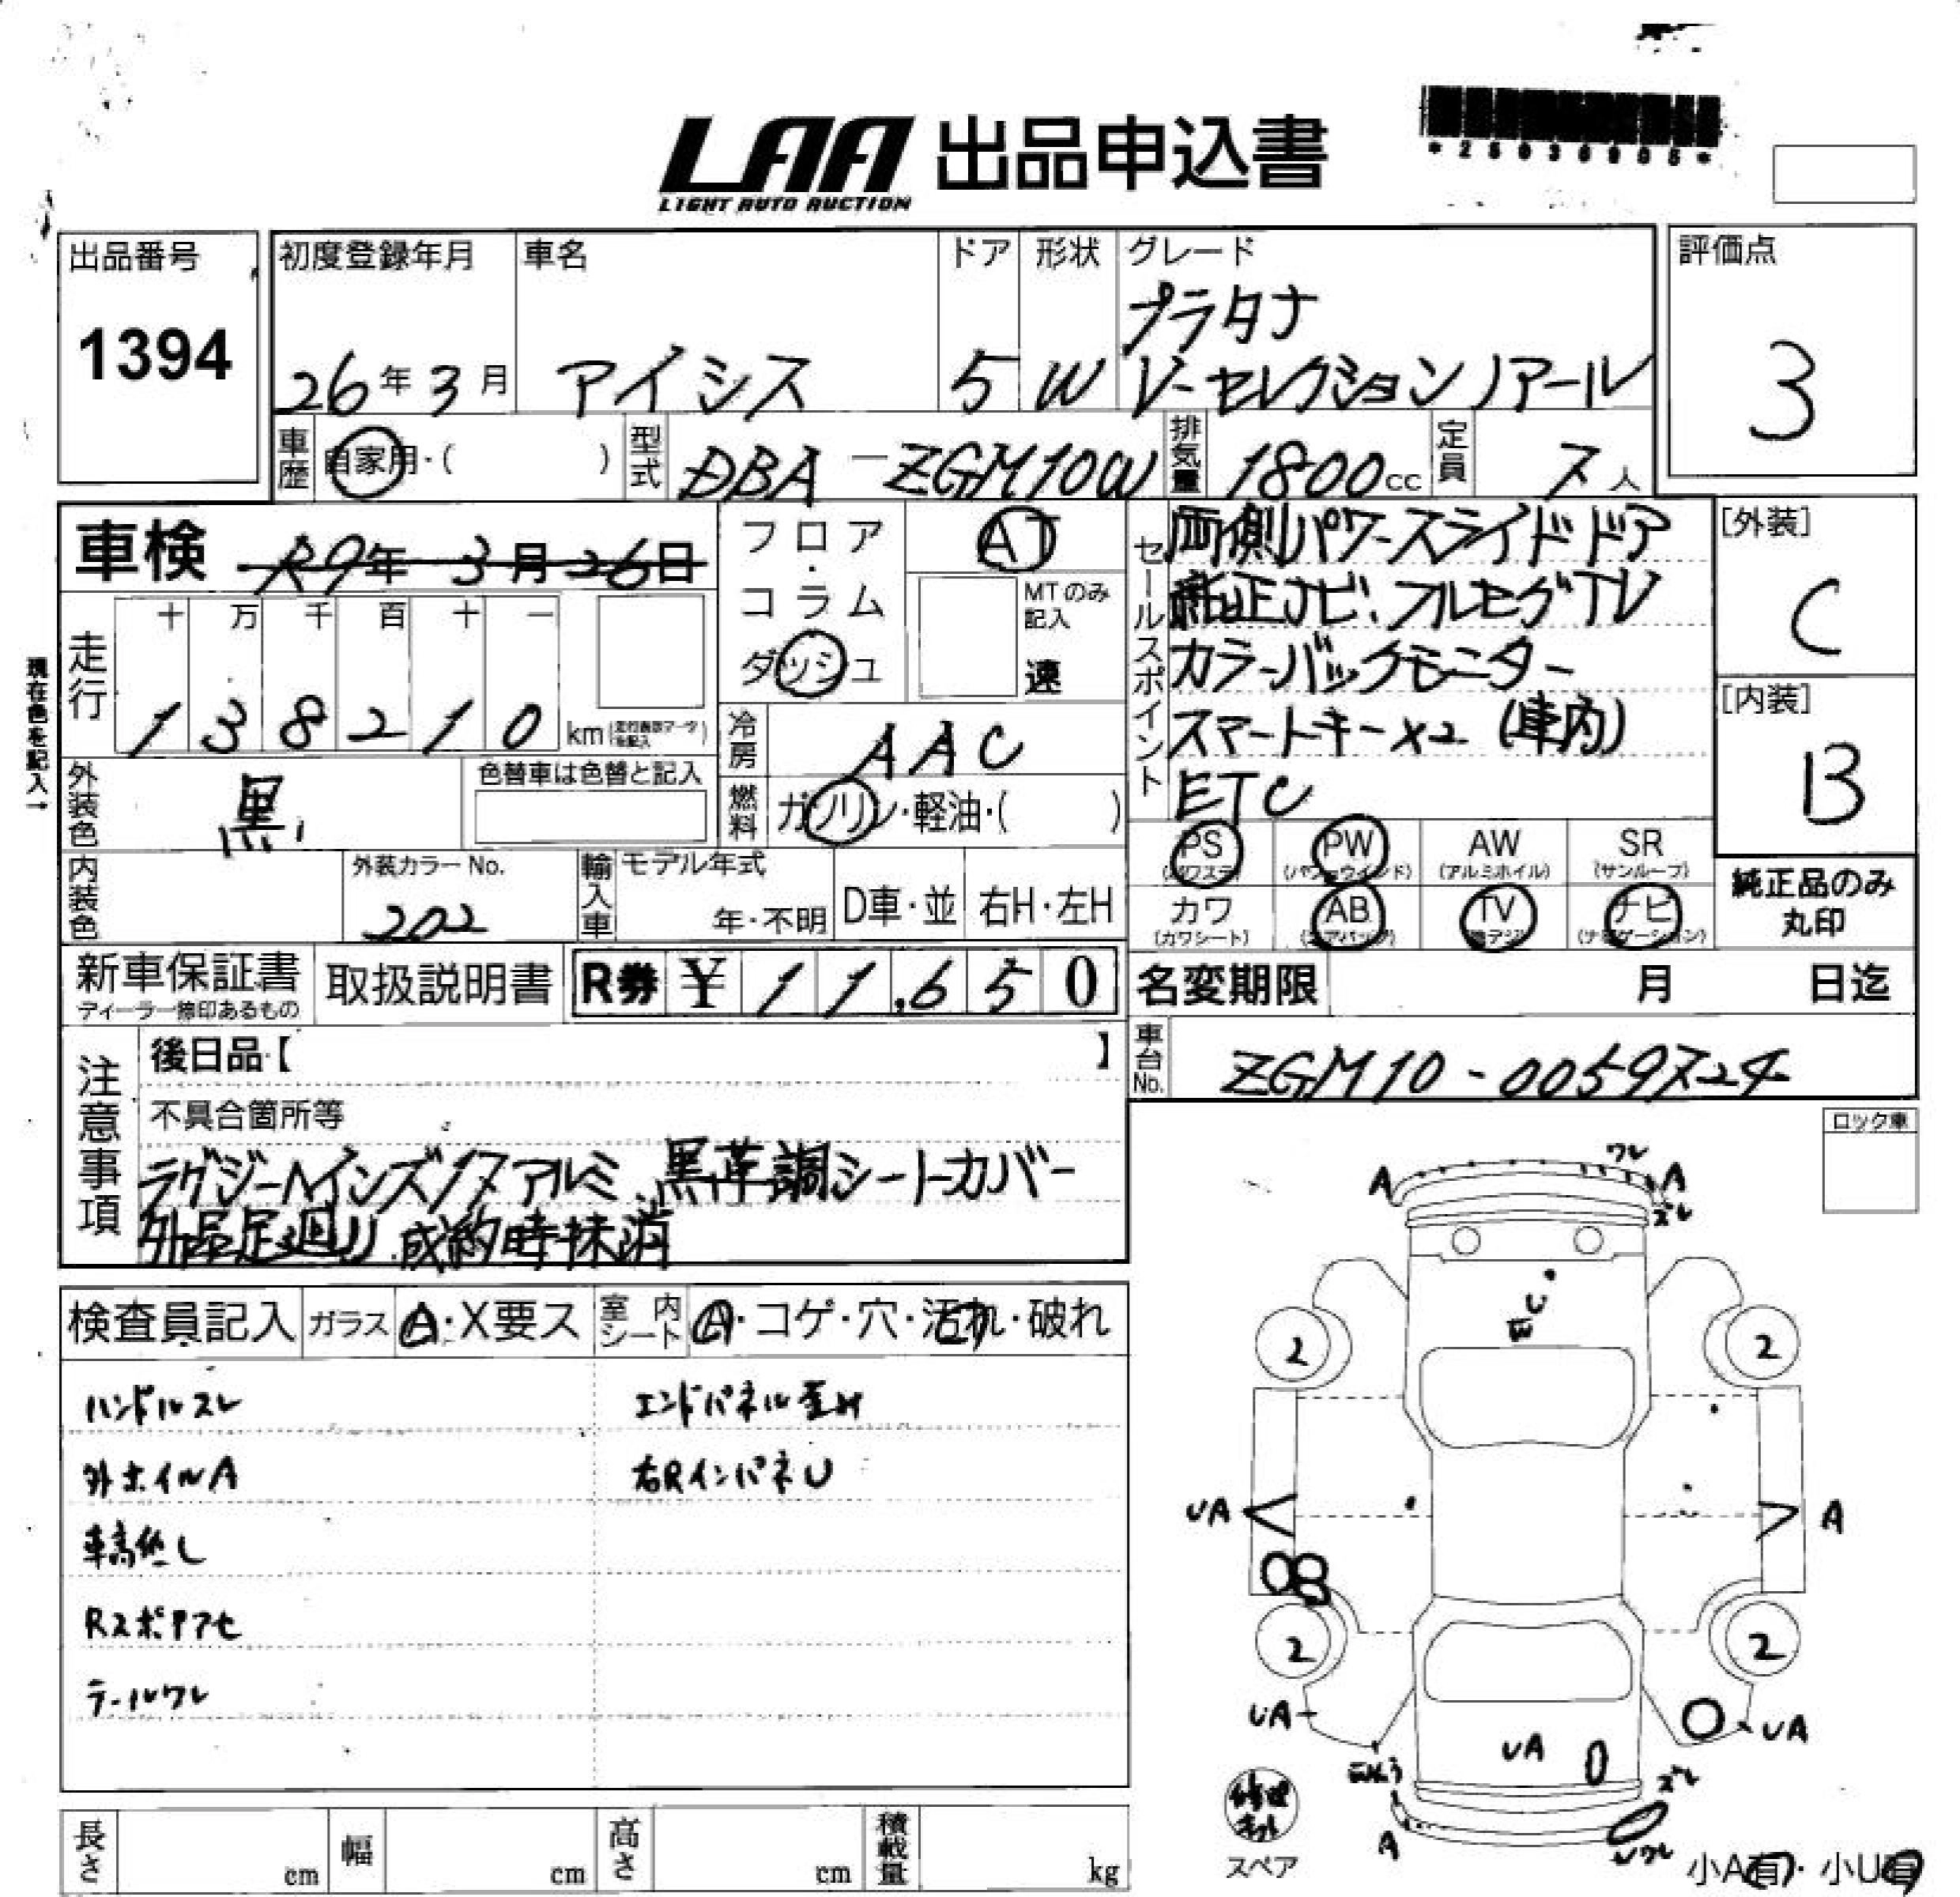 *25036905*
LAA 出品申込書
LIGHT AUTO AUCTION
出品番号
1394
初度登録年月
26年3月
車名
アイシス
ドア
5
形状
W
グレード
プラタナ
V-セレクションノアール
評価点
3
車歴 自家用・( )
型式 DBA-ZGM10W
排気量 1800cc
定員 7人
車検 R9年3月26日
現在色を記入→
走行 十 万 千 百 十 一
1 3 8 2 1 0 km
外装色 黒
色替車は色替と記入
内装色
外装カラーNo.
202
フロア・コラム
ダッシュ
AT
MTのみ記入
速
冷房 AAC
燃料 ガソリン・軽油・( )
輸入車 モデル年式
年・不明
D車・並
右H・左H
セールスポイント
両側パワースライドドア
純正ナビ、フルセグTV
カラーバックモニター
スマートキーx2 (車内)
ETC
[外装]
C
[内装]
B
PS
(パワステ)
PW
(パワーウインドド)
AW
(アルミホイル)
SR
(サンルーフ)
カワ
(カワシート)
AB
(エアバッグ)
TV
(地デジ)
ナビ
(ナビゲーション)
純正品のみ
丸印
新車保証書
ディーラー捺印あるもの
取扱説明書
R券 ¥ 11,650
名変期限 月 日迄
車台No. ZGM10-0059724
注意事項
後日品【 】
不具合箇所等
ラグジーヘインズ17アルミ、黒革調シートカバー
外品足廻り 成約時抹消
検査員記入
ガラス A・X要ス
室内シート A・コゲ・穴・汚れ・破れ
ハンドルスレ
外ホイルA
車高低し
Rスポ色アセ
テールワレ
エンドパネル歪み
右RインパネU
ロック車
A
ワレ
A
ズレ
U
2
2
UA
A
2
2
UA
UA
UA
ズレ
A
Uワレ
修理
キット
スペア
小A有・小U有
長さ cm
幅 cm
高さ cm
積載量 kg